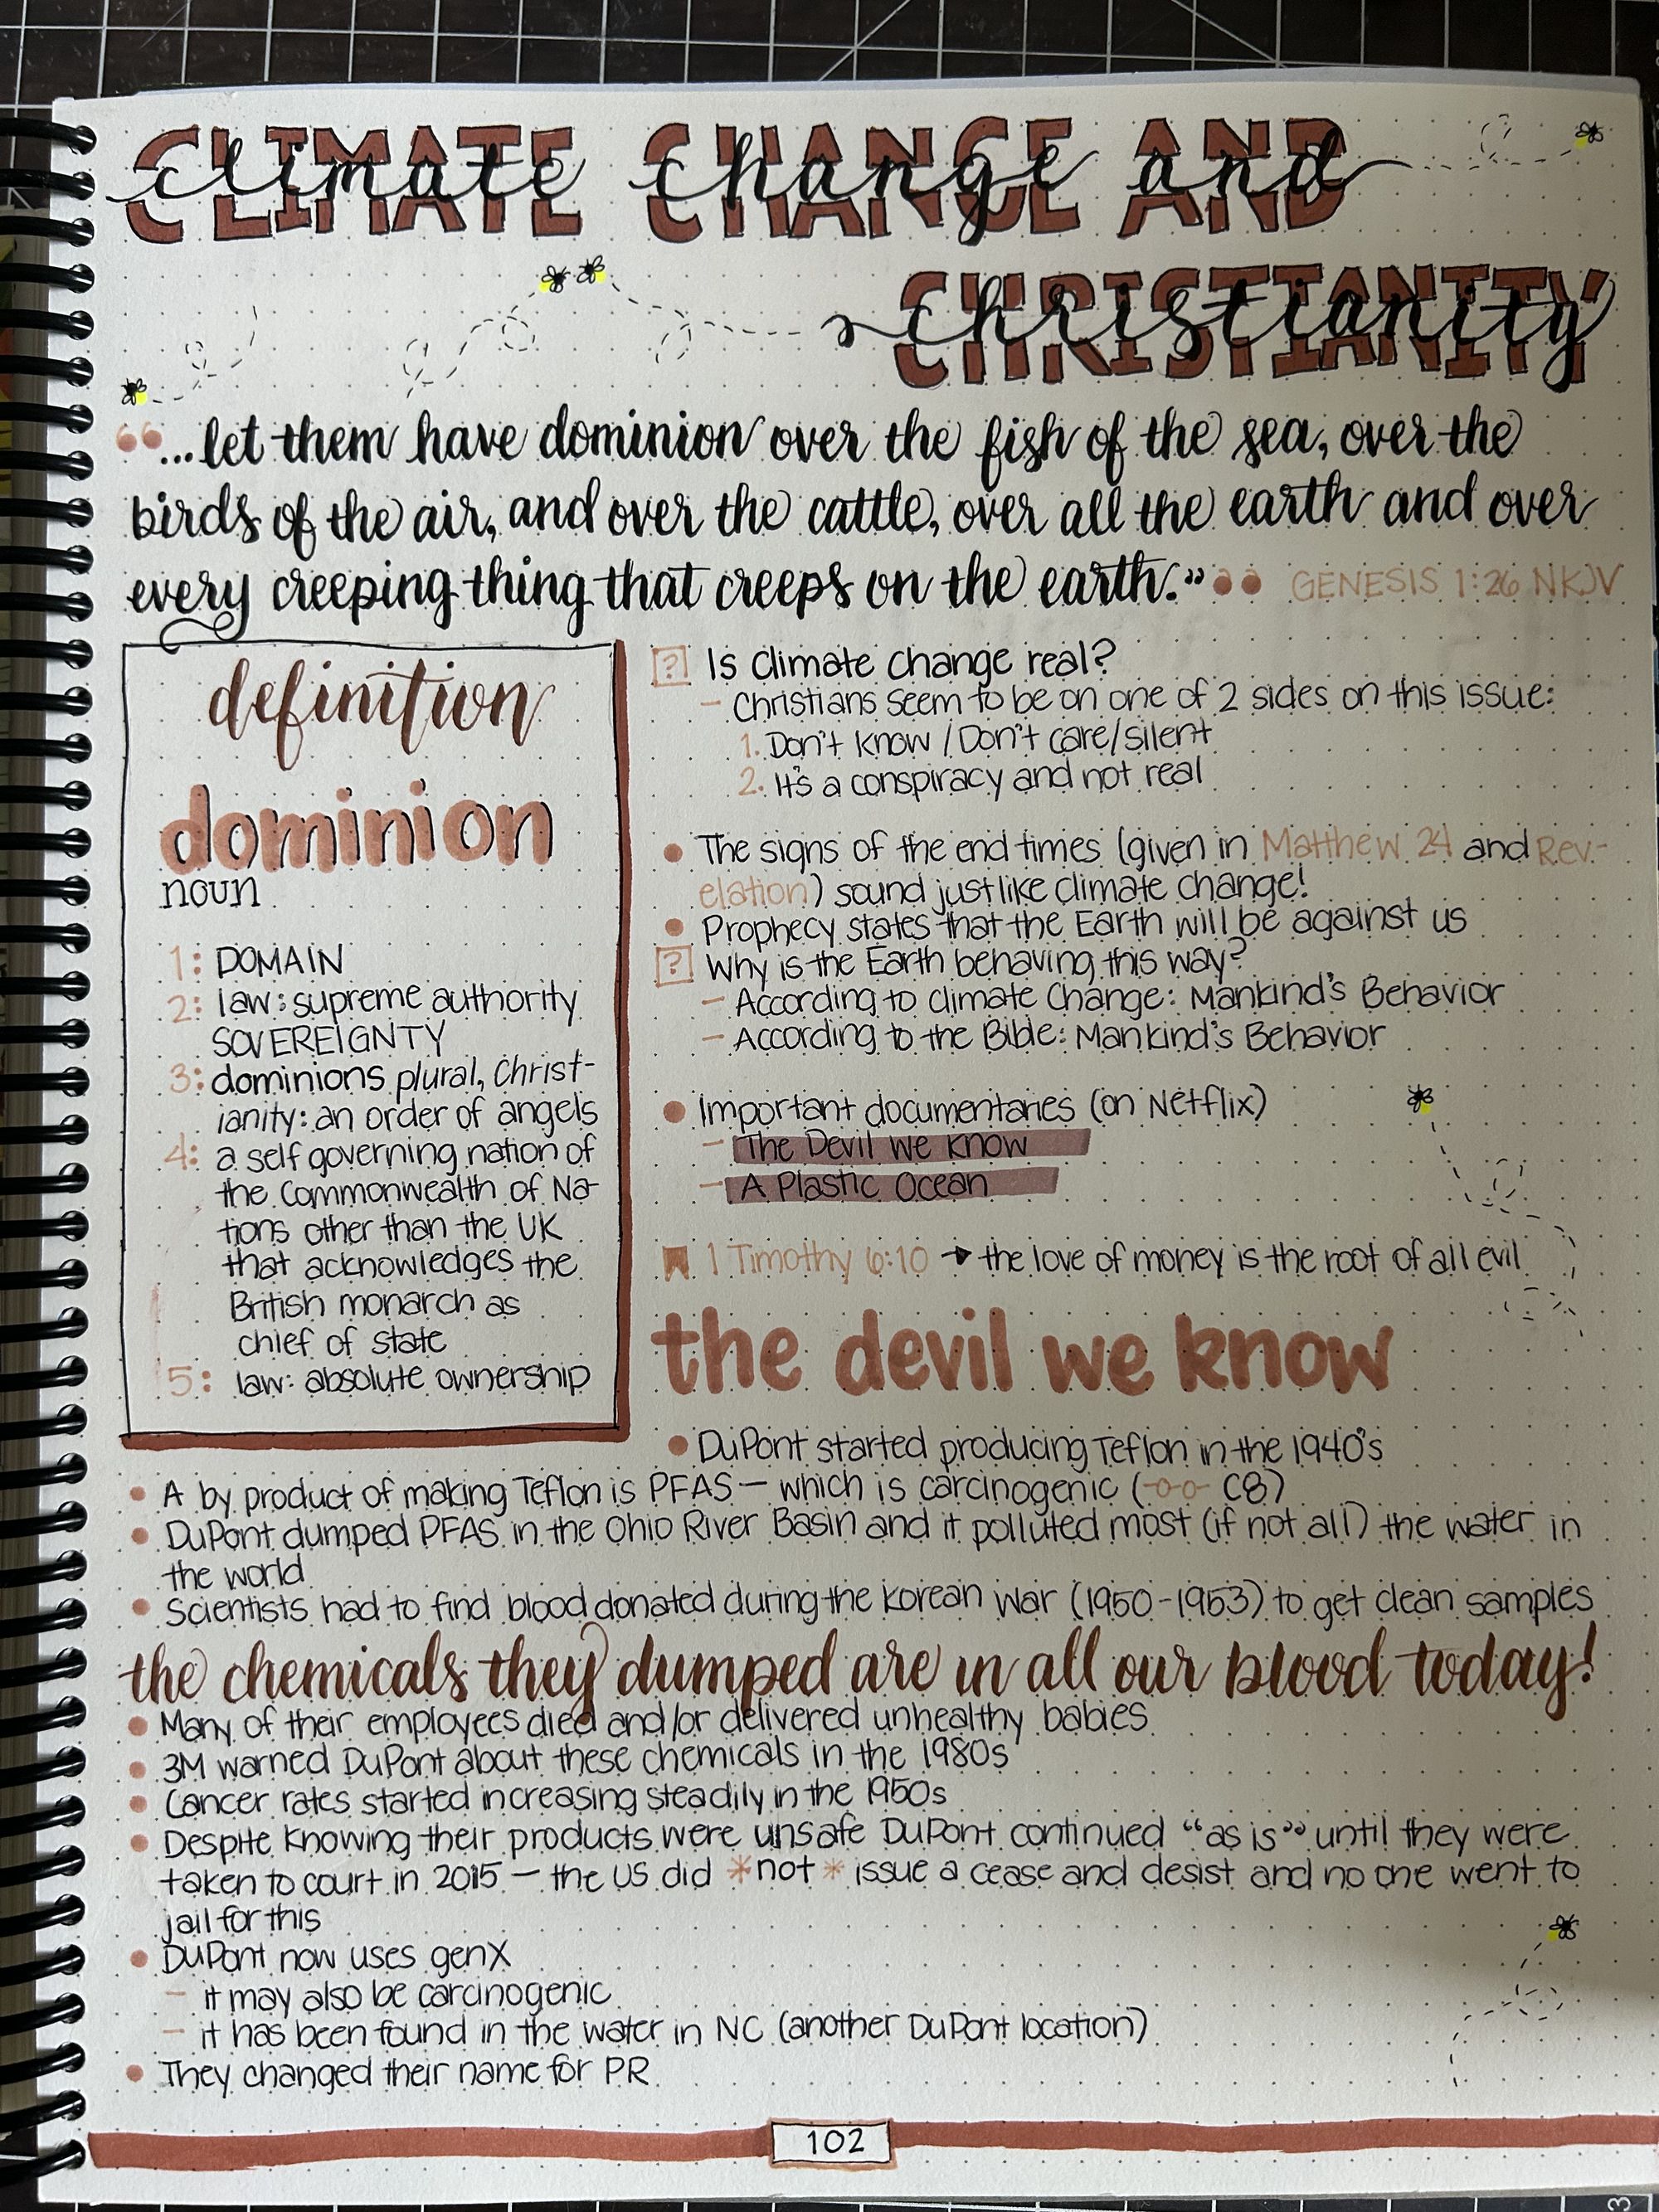 CLIMATE CHANGE AND
climate change and
CHRISTIANITY
christianity
“...let them have dominion over the fish of the sea, over the
birds of the air, and over the cattle, over all the earth and over
every creeping thing that creeps on the earth.”” GENESIS 1:26 NKJV
definition
dominion
noun
1: DOMAIN
2: law: supreme authority
SOVEREIGNTY
3: dominions plural, Christ-
ianity: an order of angels
4: a self governing nation of
the Commonwealth of Na-
tions other than the UK
that acknowledges the
British monarch as
chief of state
5: law: absolute ownership
? Is Climate Change real?
- Christians seem to be on one of 2 sides on this issue:
1. Don't know / Don't care/silent
2. It's a conspiracy and not real
• The signs of the end times (given in Matthew 24 and Rev-
elation) sound just like Climate Change!
• Prophecy states that the Earth will be against us
? Why is the Earth behaving this way?
- According to Climate Change: Mankind's Behavior
- According to the Bible: Mankind's Behavior
• Important documentaries (on Netflix)
- The Devil We Know
- A Plastic Ocean
1 Timothy 6:10 → the love of money is the root of all evil
the devil we know
• DuPont started producing Teflon in the 1940's
• A by product of making Teflon is PFAS - which is carcinogenic (-o-o- C8)
• DuPont dumped PFAS in the Ohio River Basin and it polluted most (if not all) the water in
the world
• Scientists had to find blood donated during the Korean War (1950-1953) to get clean samples
the chemicals they dumped are in all our blood today!
• Many of their employees died and/or delivered unhealthy babies
• 3M warned DuPont about these chemicals in the 1980s
• Cancer rates started increasing steadily in the 1950s
• Despite knowing their products were unsafe DuPont continued “as is” until they were
taken to court in 2015 - the US did *not* issue a cease and desist and no one went to
jail for this
• DuPont now uses genX
- it may also be carcinogenic
- it has been found in the water in NC (another DuPont location)
• They changed their name for PR
102
3